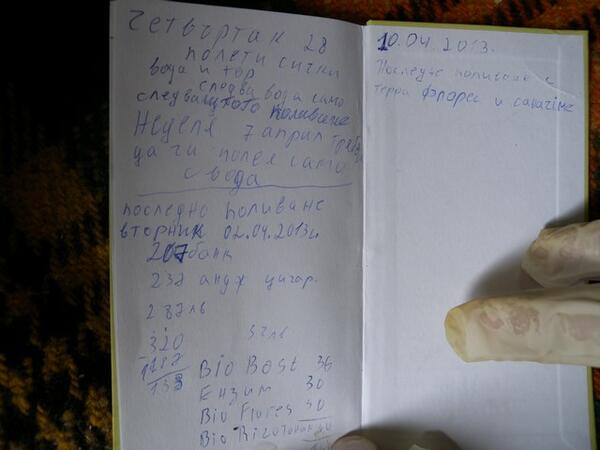 Четвъртак 28
полети сички
вода и тор
следва вода само
следващото поливане
Неделя 7 април трябва
да ги полея само
с вода
последно поливане
вторник 02.04.2013г.
267 банк
232 андж цигар.
287лв
320 32лв
187
133
Bio Bost 36
Ензим 30
Bio Flores 40
Bio
10.04.2013.
Последно поливане с
терра флорес и